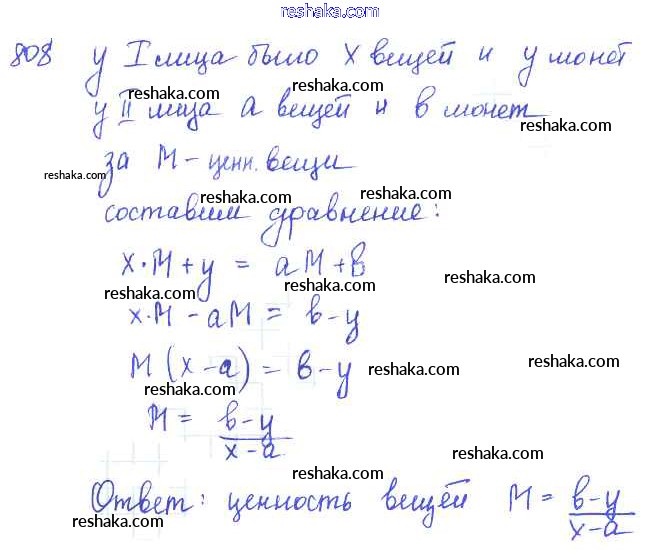 reshaka.com
808 у I лица было x вещей и y монет
reshaka.com reshaka.com
у II лица a вещей и в монет
reshaka.com
за М - ценн. вещи
reshaka.com
reshaka.com reshaka.com
составим уравнение:
x·M + y = aM + в
reshaka.com
reshaka.com reshaka.com
x·M - aM = в - y
M (x - a) = в - y
reshaka.com reshaka.com
reshaka.com
M = в-y / x-a
reshaka.com
reshaka.com
Ответ: ценность вещей M = в-y / x-a
reshaka.com reshaka.com